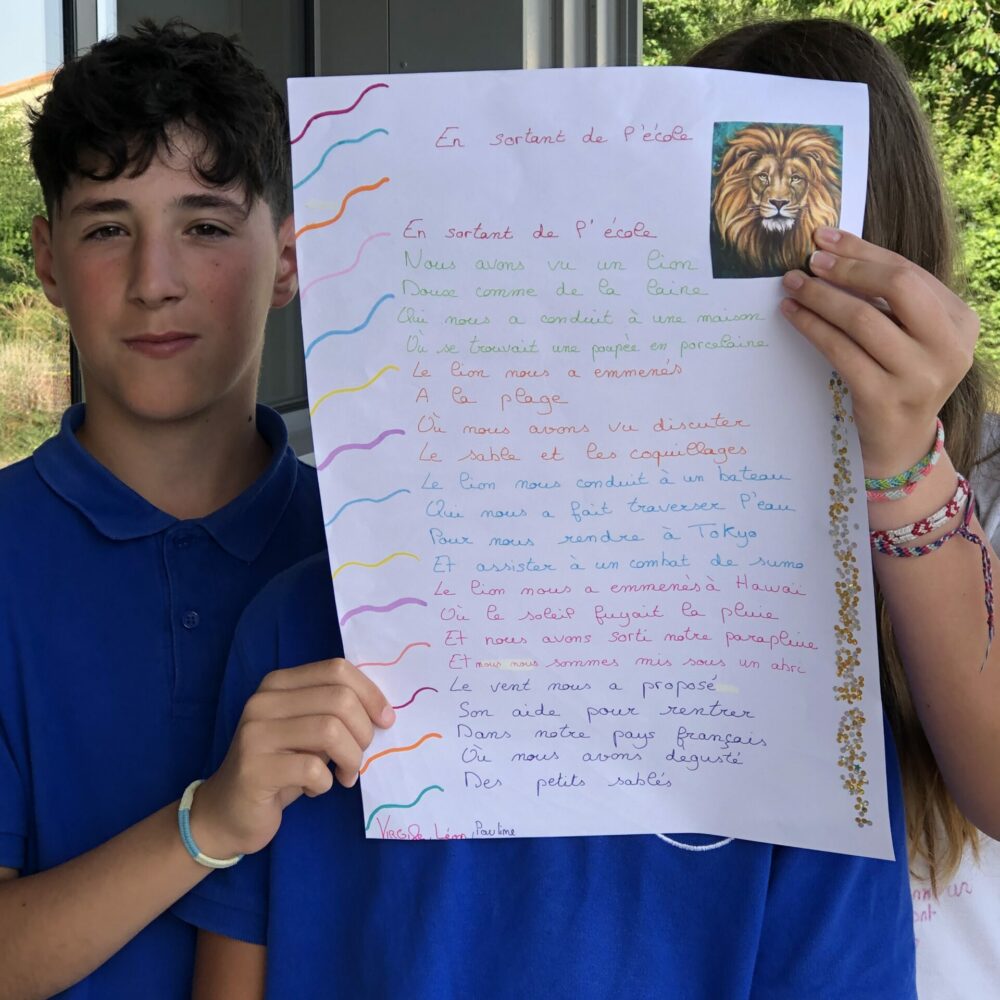 En sortant de l'école
En sortant de l'école
Nous avons vu un lion
Doux comme de la laine
Qui nous a conduit à une maison
Où se trouvait une poupée en porcelaine
Le lion nous a emmenés
A la plage
Où nous avons vu discuter
Le sable et les coquillages
Le lion nous conduit à un bateau
Qui nous a fait traverser l'eau
Pour nous rendre à Tokyo
Et assister à un combat de sumo
Le lion nous a emmenés à Hawaï
Où le soleil fuyait la pluie
Et nous avons sorti notre parapluie
Et nous nous sommes mis sous un abri
Le vent nous a proposé
Son aide pour rentrer
Dans notre pays français
Où nous avons dégusté
Des petits sablés
Virgile, Léon, Pauline